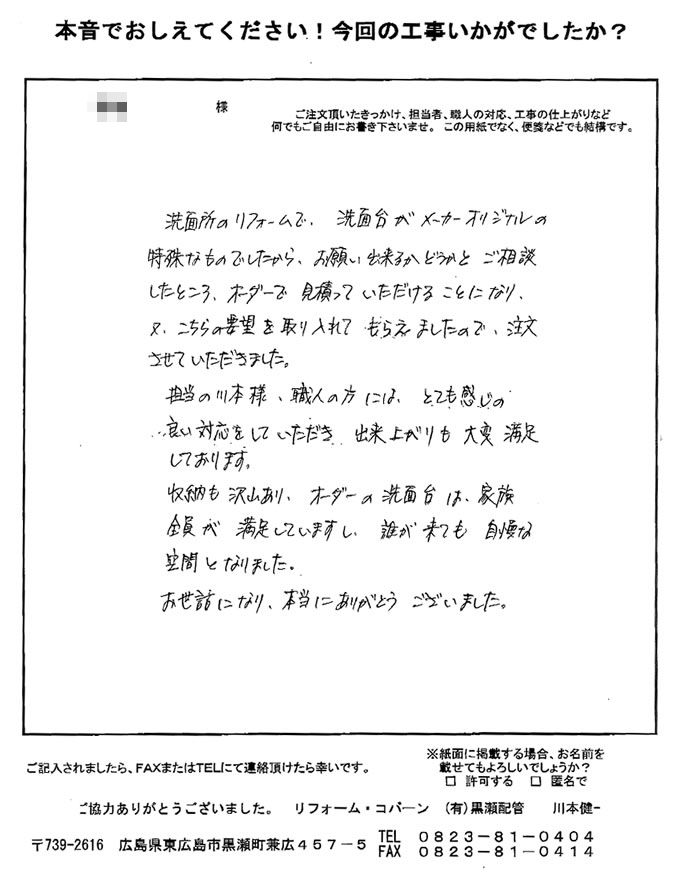 本音でおしえてください!今回の工事いかがでしたか?
様
ご注文頂いたきっかけ、担当者、職人の対応、工事の仕上がりなど
何でもご自由にお書き下さいませ。この用紙でなく、便箋などでも結構です。
洗面所のリフォームで、洗面台がメーカーオリジナルの
特殊なものでしたから、お願い出来るかどうかとご相談
したところ、オーダーで見積っていただけることになり、
又、こちらの要望を取り入れてもらえましたので、注文
させていただきました。
担当の川本様、職人の方には、とても感じの
良い対応をしていただき出来上がりも大変満足
しております。
収納も沢山あり、オーダーの洗面台は、家族
全員が満足していますし、誰が来ても自慢な
空間となりました。
お世話になり、本当にありがとうございました。
ご記入されましたら、FAXまたはTELにて連絡頂けたら幸いです。
※紙面に掲載する場合、お名前を
載せてもよろしいでしょうか?
□ 許可する □ 匿名で
ご協力ありがとうございました。 リフォーム・コバーン (有)黒瀬配管 川本健一
〒739-2616 広島県東広島市黒瀬町兼広457-5
TEL 0823-81-0404
FAX 0823-81-0414